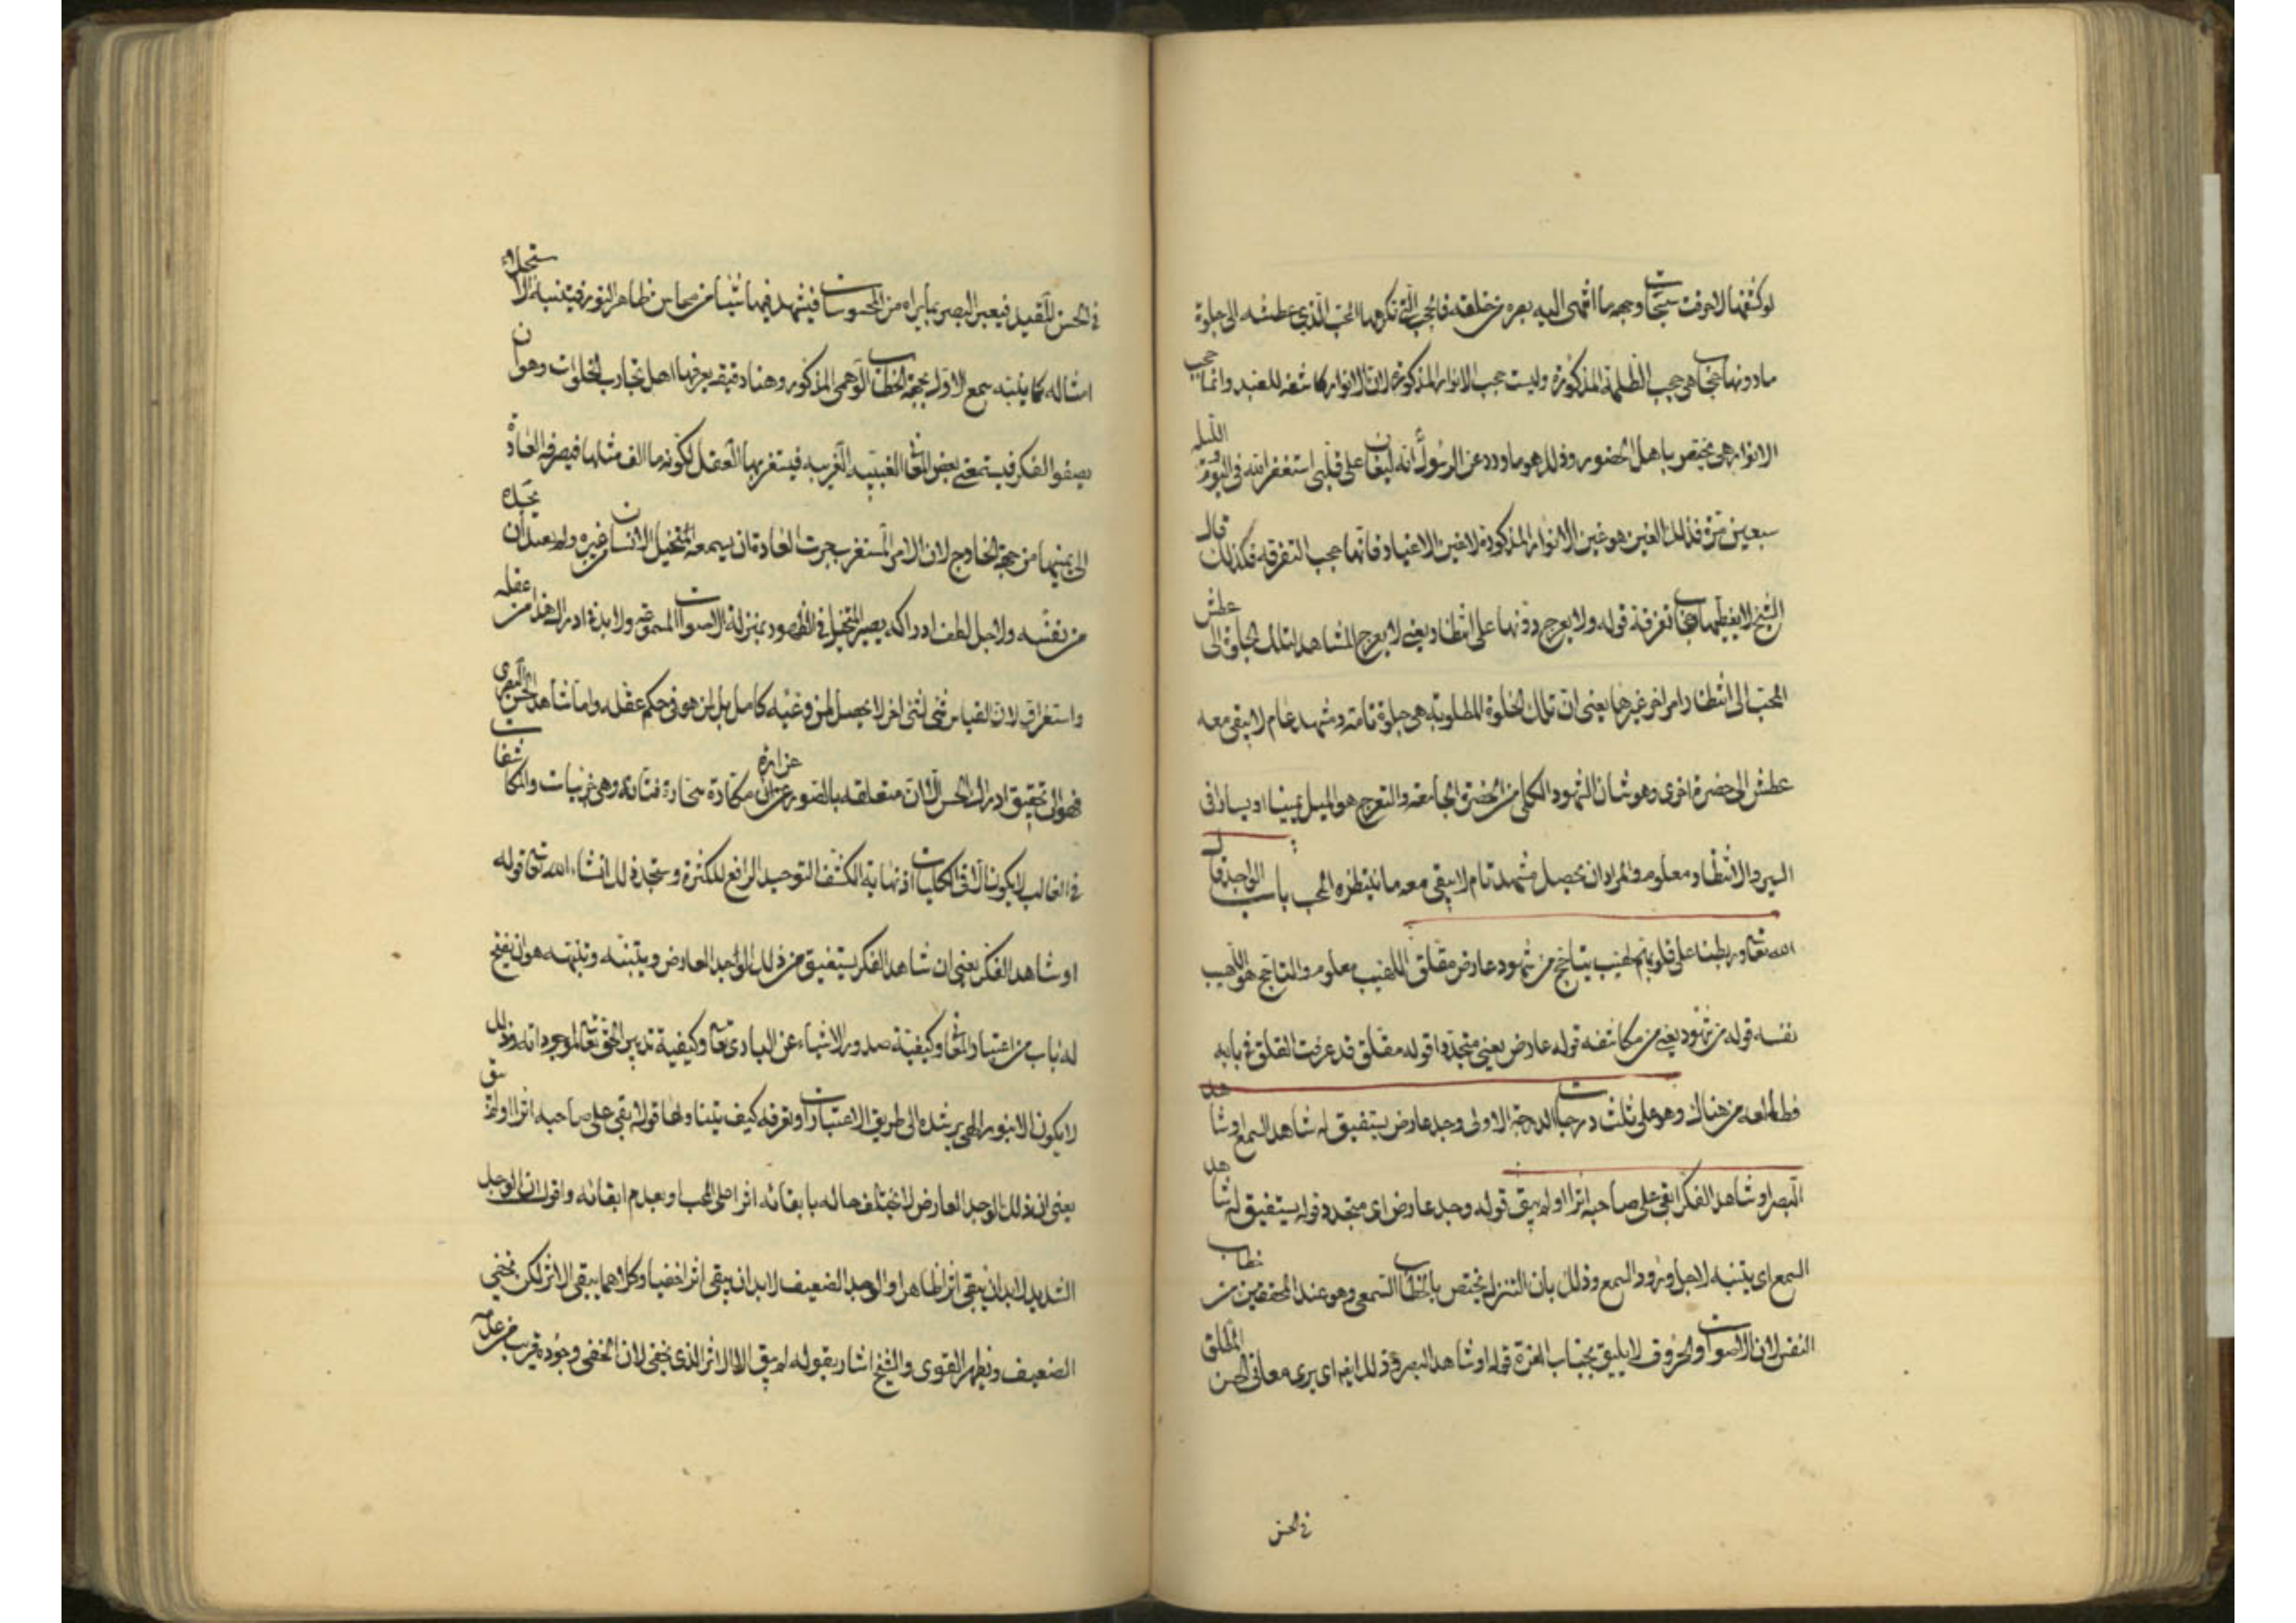 لو كشفها لاحرقت سبحات وجهه ما انتهى اليه بصره من خلقه فالحجب التي تكره المحب الذي عطشه الى جلوة
ما دونها سحاب هي حجب الظلمة المذكورة وليست حجب الانوار المذكورة لان الانوار كاشفه للعبد وانما حجب
الانوار هي تختص باهل الحضور وذلك هو ما ورد عن الرسول انه ليغان على قلبي استغفر الله في اليوم والليله
سبعين مرة فذلك الغين هو غين الانوار المذكورة لا غين الاغيار فانها حجب التفرقه فكذلك قال
الشيخ لا يغطيها سحاب تفرقة قوله ولا يعرج دونها على انتظار يعني لا يعرج المشاهد لتلك الجلوة الى عطش
المحب الى انتظار امر اخر غيرها يعني ان تلك الجلوة المطلوبة هي جلوة تامة ومشهد عام لا يبقى معه
عطش الى حضرة اخرى وهو شان الشهود الكلي من الحضرة الجامعه والتعرج هو الميل يمينا او يسارا في
السير والانتظار معلوم والمراد ان يحصل مشهد تام لا يبقى معه ما ينتظره المحب باب الوجد قال
الله تعالى وربطنا على قلوبهم لهيب يتاجج من شهود عارض مقلق اللهيب معلوم والتاجج هو اللهيب
نفسه قوله من شهود يعني من مكاشفه قوله عارض يعني متجددا قوله مقلق قد عرفت القلق في بابه
فطالعه من هناك وهو على ثلث درجات الدرجة الاولى وجد عارض يستفيق له شاهد السمع او شاهد
البصر او شاهد الفكر ابقى على صاحبه اثرا او لم يبق قوله وجد عارض اى متجدد قوله يستفيق له شاهد
السمع اى يتنبه لاجل ورود السمع وذلك بان التنزل يختص بالخطاب السمعي وهو عند المحققين من خطاب
النفس لان الاصوات والحروف لا يليق بجناب العزة قوله او شاهد البصر وذلك ايضا اى يرى معاني الحسن المطلق
في الحسن
في الحسن المقيد فيعبر البصر بما يراه من المحسوسات فيشهد فيها شيئا من محاسن ظاهر النور فيتنبه لاستجلاء
امثاله كما يتنبه سمع الاول بجهة الخطاب الوهمي المذكور وهنا دقيقه يعرفها اهل تجارب الخلوات وهو ان
يصفو الفكر فيستمع بعض المعاني الغيبيه الغريبه فيستغربها العقل لكونه ما الف مثلها فيصرفه العادة
الى من جهة الخارج لان الامر المستغرب جرت العادة بان يسمعه المتخيل الانسان من غيره ولم يعهد ان يجده
من نفسه ولاجل لطف ادراكه يصير المتخيل في الظهور بمنزلة الاصوات المسموعة ولا بد في ادراك هذا من غفله
واستغراق لان القياس شيء لشيء اخر لا يحصل لمن هو غيبه كامل بل لمن هو في حكم عقله واما شاهد الحسن البصرى
فهو الى تحقيق ادراك الحسن الا ان متعلقه بالصور غرارة مكارة سحارة فتانه وهي غريبات والمكاشفات
في الغالب لا يكون الا في الكليات اذ نهاية الكشف التوحيد الرافع للكثرة وستجد ذلك انشاء الله تعالى قوله
او شاهد الفكر يعني ان شاهد الفكر يستفيق من ذلك الوجد العارض ويتنبه وتنبهه هو ان يفتح
له باب من اعتبار المعاني وكيفية صدور الاشياء عن البارى تعالى وكيفية تدبير الحق تعالى لموجوداته وذلك
لا يكون الا بنور الهي يرشده الى طريق الاعتبارات ويعرفه كيف يتناولها قوله ابقى على صاحبه اثرا او لم يبق
يعني ان ذلك الوجد العارض لا يختلف حاله بابقائه اثرا على المحب وبعدم ابقائه واقول ان الوجد
الشديد لابد ان يبقى اثرا ظاهرا والوجد الضعيف لابد ان يبقى اثرا خفيا وكلاهما يبقى الاثر لكن يخفي
الضعيف ويظهر القوى والشيخ اشار بقوله لم يبق الا الاثر الذى يخفى لان الخفى وجوده قريب من عدمه